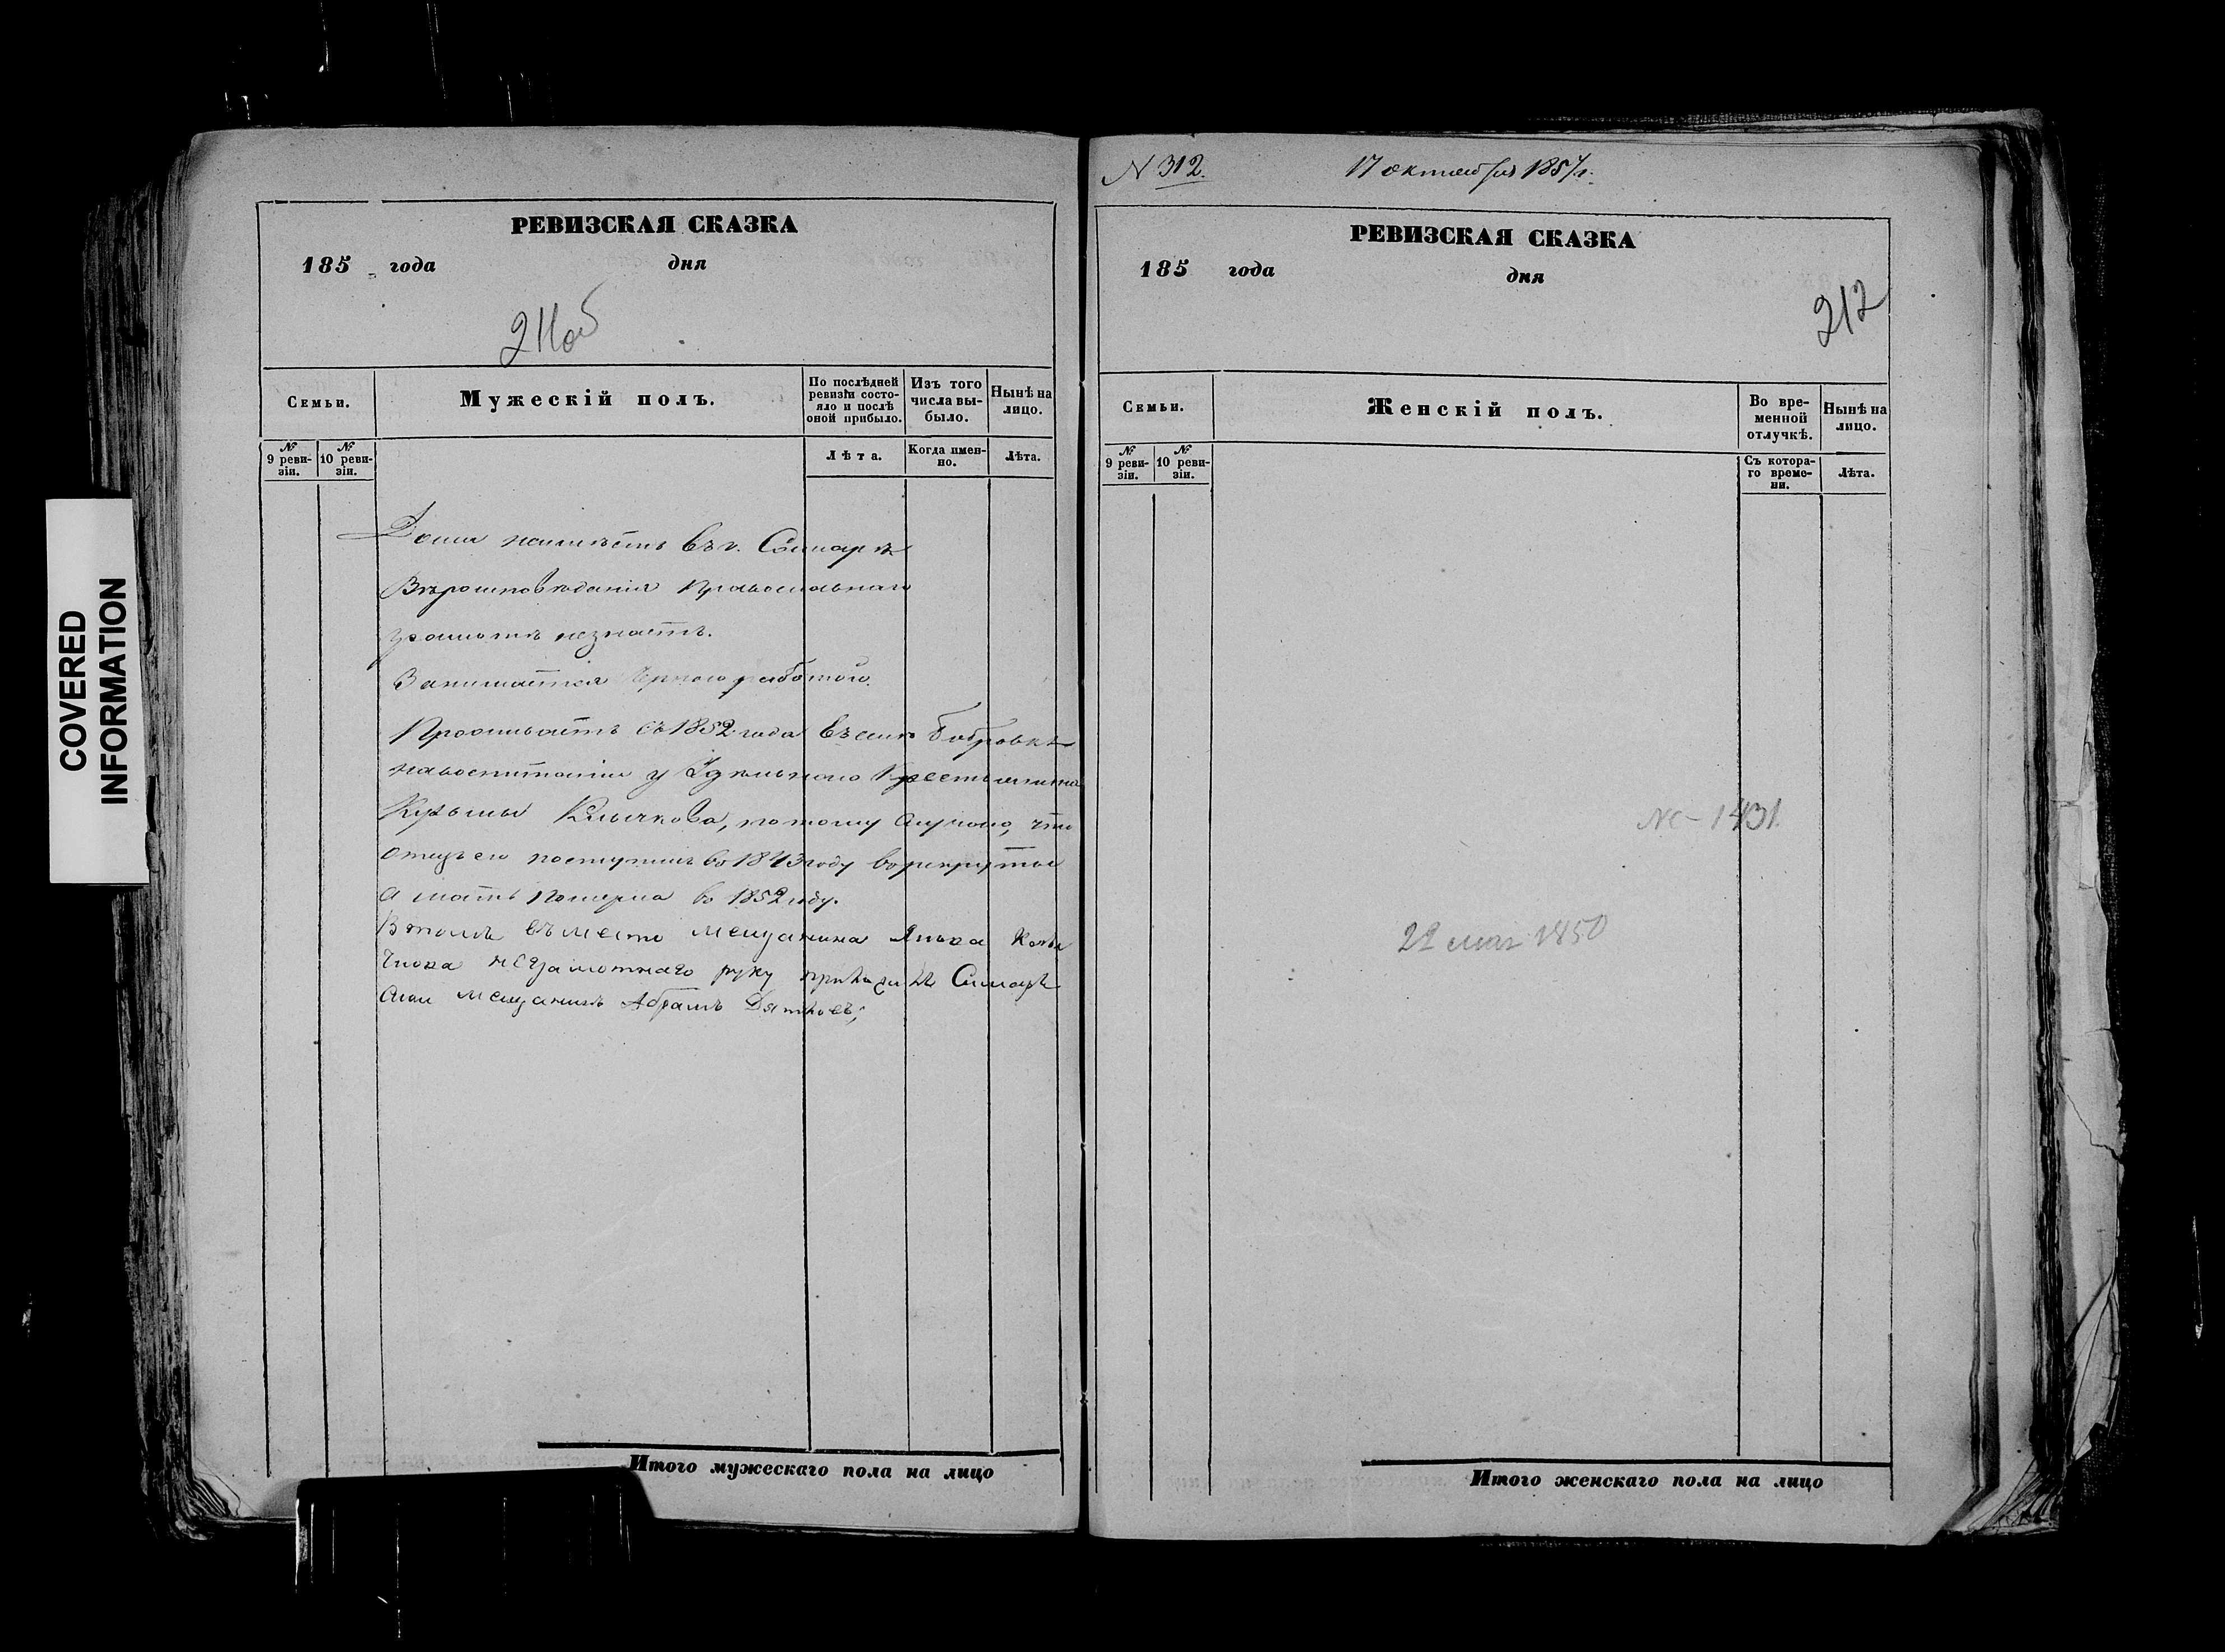 COVERED
INFORMATION
РЕВИЗСКАЯ СКАЗКА
185 года дня
211об
Семьи.
Мужескій полъ.
По послѣдней ревизіи состояло и послѣ оной прибыло.
Изъ того числа выбыло.
Нынѣ на лицо.
№ 9 ревизіи.
№ 10 ревизіи.
Лѣта.
Когда именно.
Лѣта.
Дома неимѣетъ въ г. Самарѣ
Вѣроисповѣданія Православнаго
грамотѣ незнаетъ.
Занимается черною работою.
Проживаетъ съ 1852 года въ селѣ Бобровкѣ
навоспитаніи у Удѣльнаго Крестьянина
Кузьмы Клычкова, потому случаю, что
отецъ его поступилъ въ 1843 году в рекруты
а мать померла въ 1852 году.
В томъ въместо мещанина
неграмотнаго руку приложилъ Самарск
мещанинъ Абрамъ Дятловъ;
Итого мужескаго пола на лицо
N 312. 17 октября 1857 г.
РЕВИЗСКАЯ СКАЗКА
185 года дня
212
Семьи.
Женскій полъ.
Во временной отлучкѣ.
Нынѣ на лицо.
№ 9 ревизіи.
№ 10 ревизіи.
Съ котораго времени.
Лѣта.
1431
22 мая 1850
Итого женскаго пола на лицо